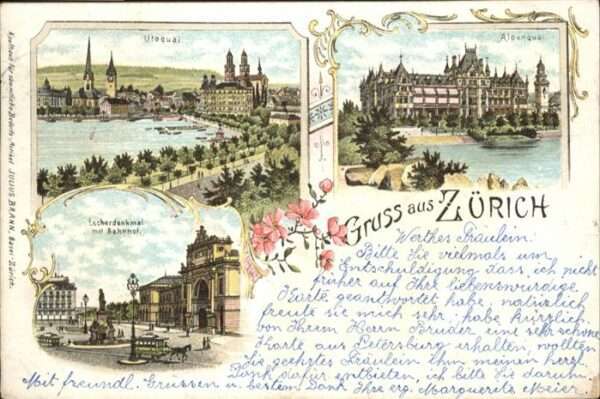 Kaufhaus für sämmtliche Bedarfs-Artikel JULIUS BRANN, Basel-Zürich.
Utoquai
Alpenquai
Escherdenkmal
mit Bahnhof.
Gruss aus ZÜRICH
Werthes Fräulein.
Bitte Sie vielmals um
Entschuldigung dass ich nicht
früher auf Ihre liebenswürdige
Karte geantwortet habe, natürlich
freute sie mich sehr, habe kürzlich
von Ihrem Herrn Bruder eine sehr schöne
Karte aus Petersburg erhalten, wollten
Sie geehrtes Fräulein ihm meinen herzl.
Dank dafür entbieten, ich bitte Sie darum.
Mit freundl. Grüssen u. bestem Dank Ihre erg. Marguerite Meier.